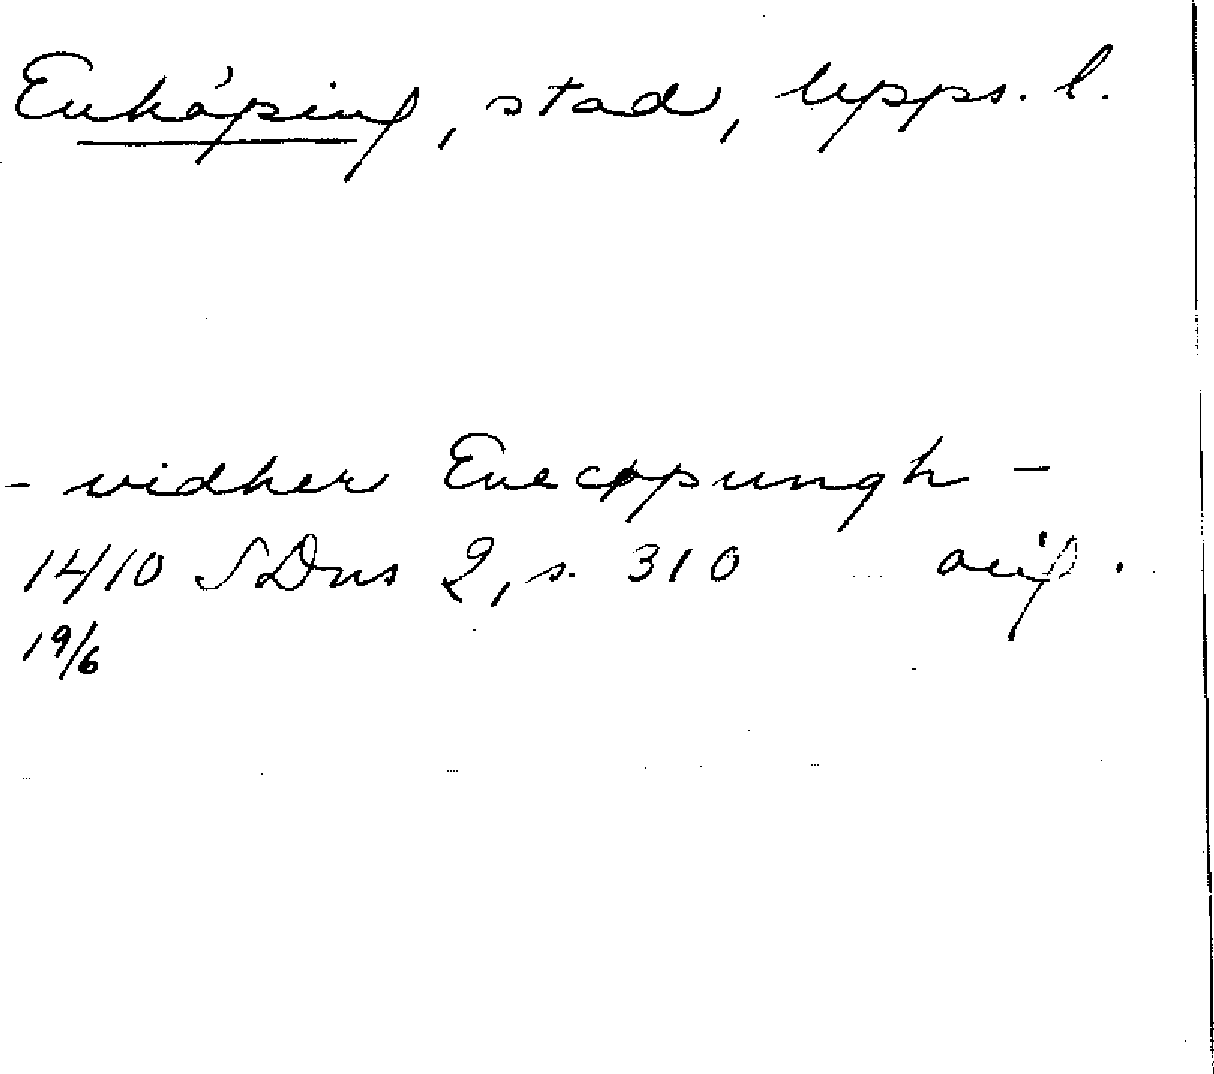 Enköping, stad, Upps. l.
- vidher Enecøpungh -
1410 SDns 2, s. 310 orig.
19/6